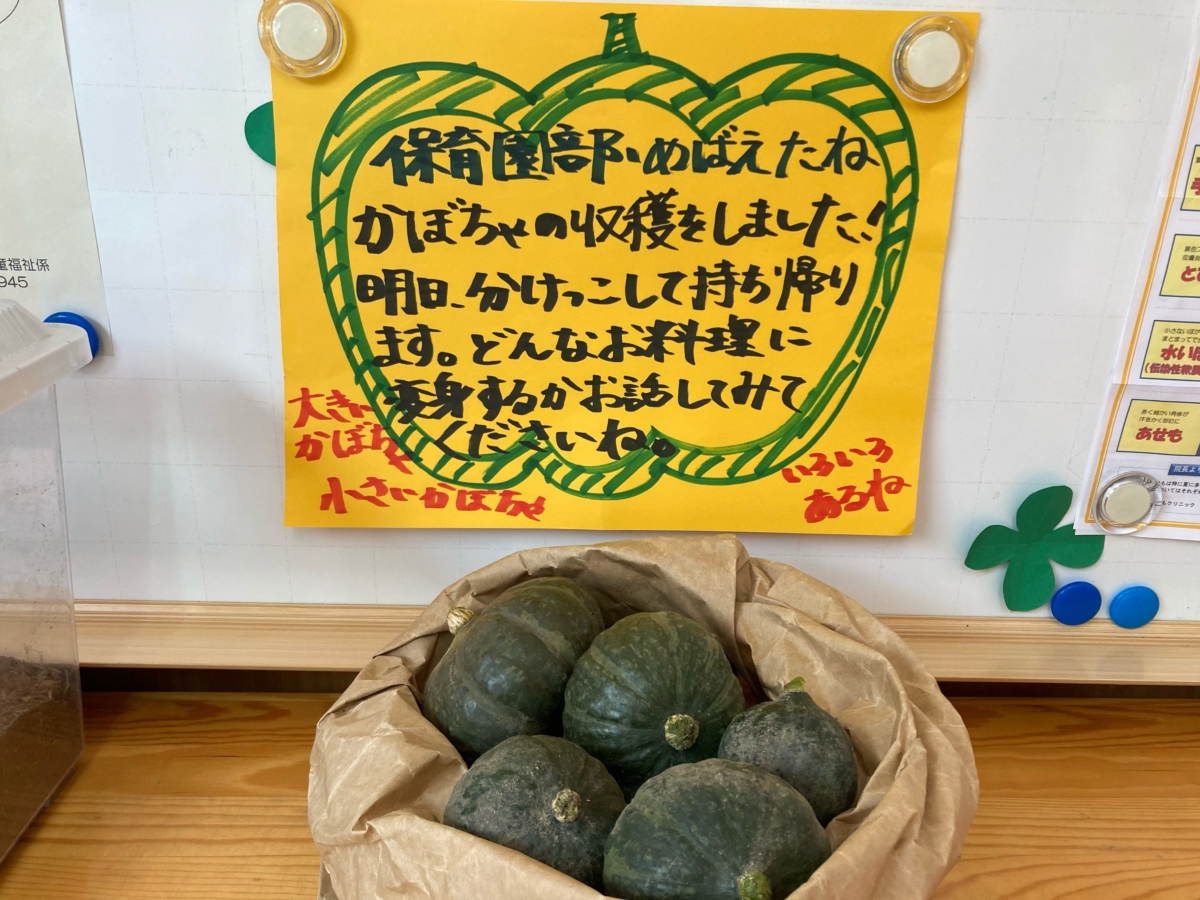 保育園部、めばえたね
かぼちゃの収穫をしました!
明日、分けっこして持ち帰り
ます。どんなお料理に
変身するかお話してみて
くださいね。
大きい
かぼちゃ
小さいかぼちゃ
いろいろ
あるね
童福祉係
945
水いぼ
あせも